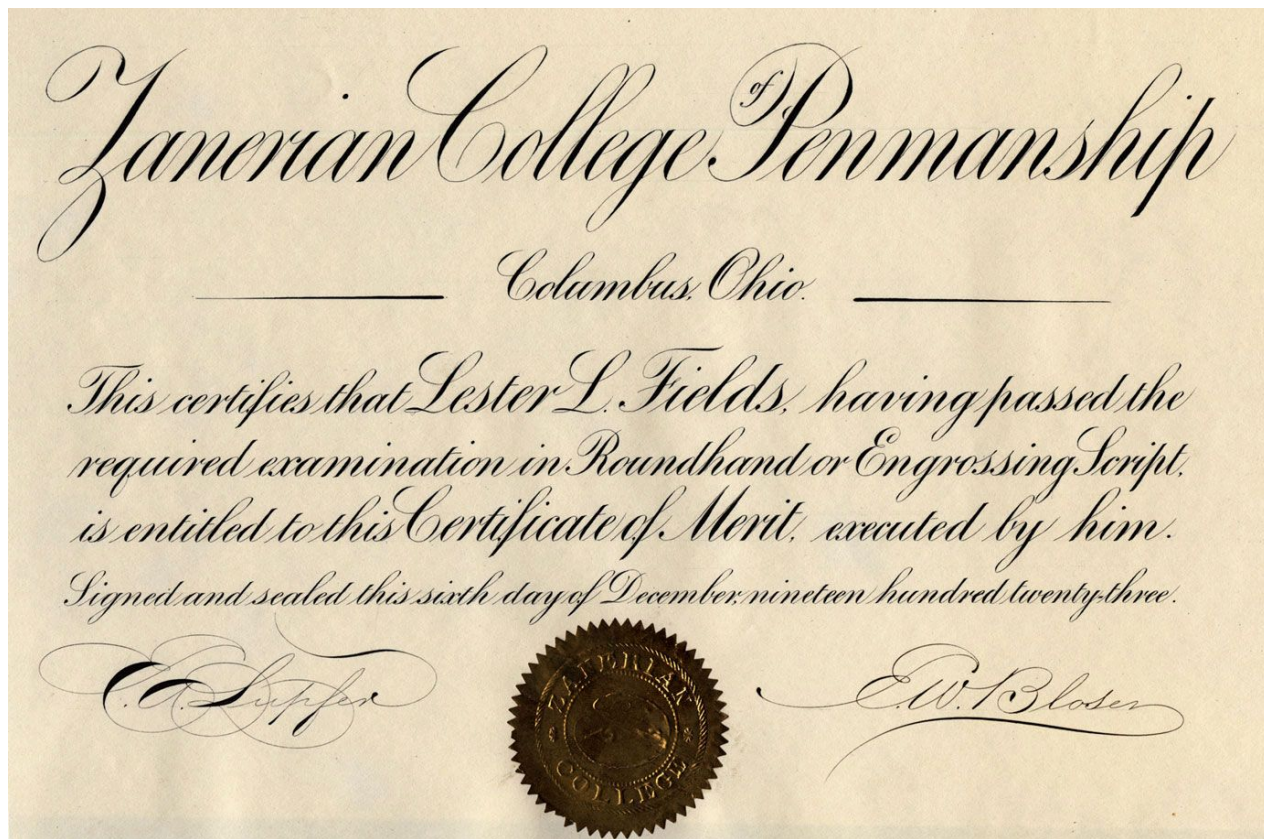 Zanerian College of Penmanship
Columbus, Ohio.
This certifies that Lester L. Fields, having passed the
required examination in Roundhand or Engrossing Script,
is entitled to this Certificate of Merit, executed by him.
Signed and sealed this sixth day of December, nineteen hundred twenty-three.
C. A. Lupfer
ZANERIAN COLLEGE
E. W. Bloser